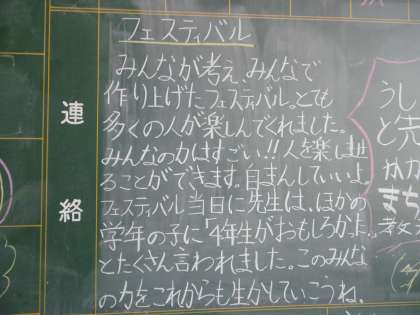 フェスティバル
連絡
みんなが考え、みんなで
作り上げたフェスティバル。とても
多くの人が楽しんでくれました。
みんなの力はすごい!!人を楽しませ
ることができます。自まんしていいよ。
フェスティバル当日に先生は、ほかの
学年の子に「4年生がおもしろかった。」
とたくさん言われました。このみんな
の力をこれからも生かしていこうね。
うし
と先